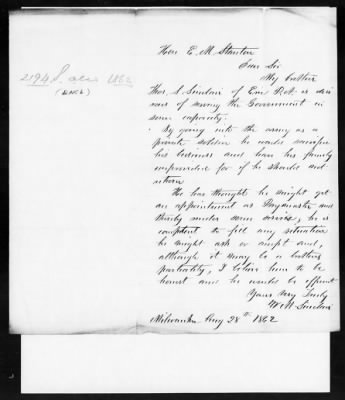 2194 S. 1862
(Encl)
Hon E. M. Stanton
Dear Sir
My brother
Thos S Sinclair of Erie Pa. is desi-
rous of serving the Government in
some capacity.
By going into the army as a
private soldier he would sacrifice
his business and leave his family
unprovided for if he should not
return
He has thought he might get
an appointment as Paymaster and
thereby render some service, he is
competent to fill any situation
he might ask or accept and,
although it may be a brothers
partiality, I believe him to be
honest and he would be efficient
Yours Very Truly
W. H. Sinclair
Milwaukee Aug 28th 1862